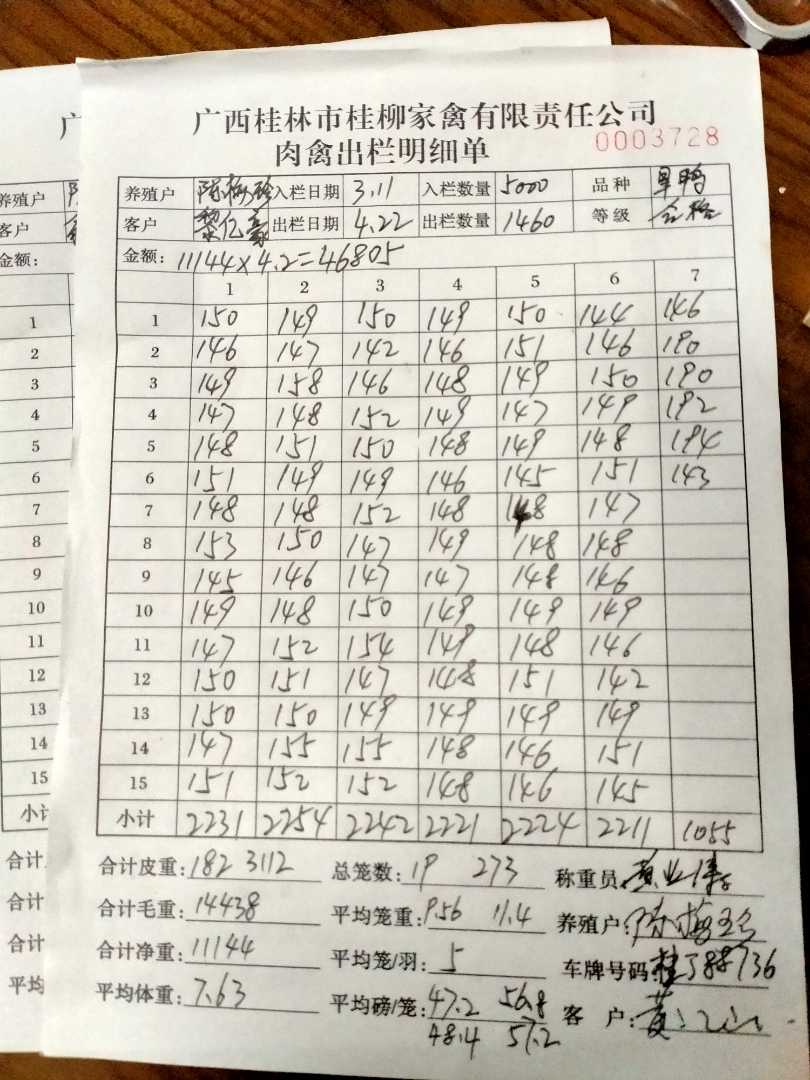 广西桂林市桂柳家禽有限责任公司
肉禽出栏明细单 0003728
养殖户 陈梅珍 入栏日期 3.11 入栏数量 5000 品种 旱鸭
客户 黎亿豪 出栏日期 4.22 出栏数量 1460 等级 合格
金额: 11144×4.2=46805
1 2 3 4 5 6 7
1 150 149 150 149 150 144 146
2 146 147 142 146 151 146 190
3 149 158 146 148 149 150 190
4 147 148 152 149 147 149 192
5 148 151 150 148 149 148 194
6 151 149 149 146 145 151 143
7 148 148 152 148 148 147
8 153 150 147 149 148 148
9 145 146 147 147 148 146
10 149 148 150 149 149 149
11 147 152 154 149 148 146
12 150 151 147 148 151 142
13 150 150 149 149 149 149
14 147 155 155 148 146 151
15 151 152 152 148 146 145
小计 2231 2254 2242 2221 2224 2211 1055
合计皮重: 182 3112 总笼数: 19 273 称重员:
合计毛重: 14438 平均笼重: 9.56 11.4 养殖户: 陈梅珍
合计净重: 11144 平均笼/羽: 5 车牌号码: 桂J88736
平均体重: 7.63 平均磅/笼: 47.2 56.8 客户:
48.4 57.2
养殖户
客户
金额:
1
2
3
4
5
6
7
8
9
10
11
12
13
14
15
小计
合计
合计
合计
平均